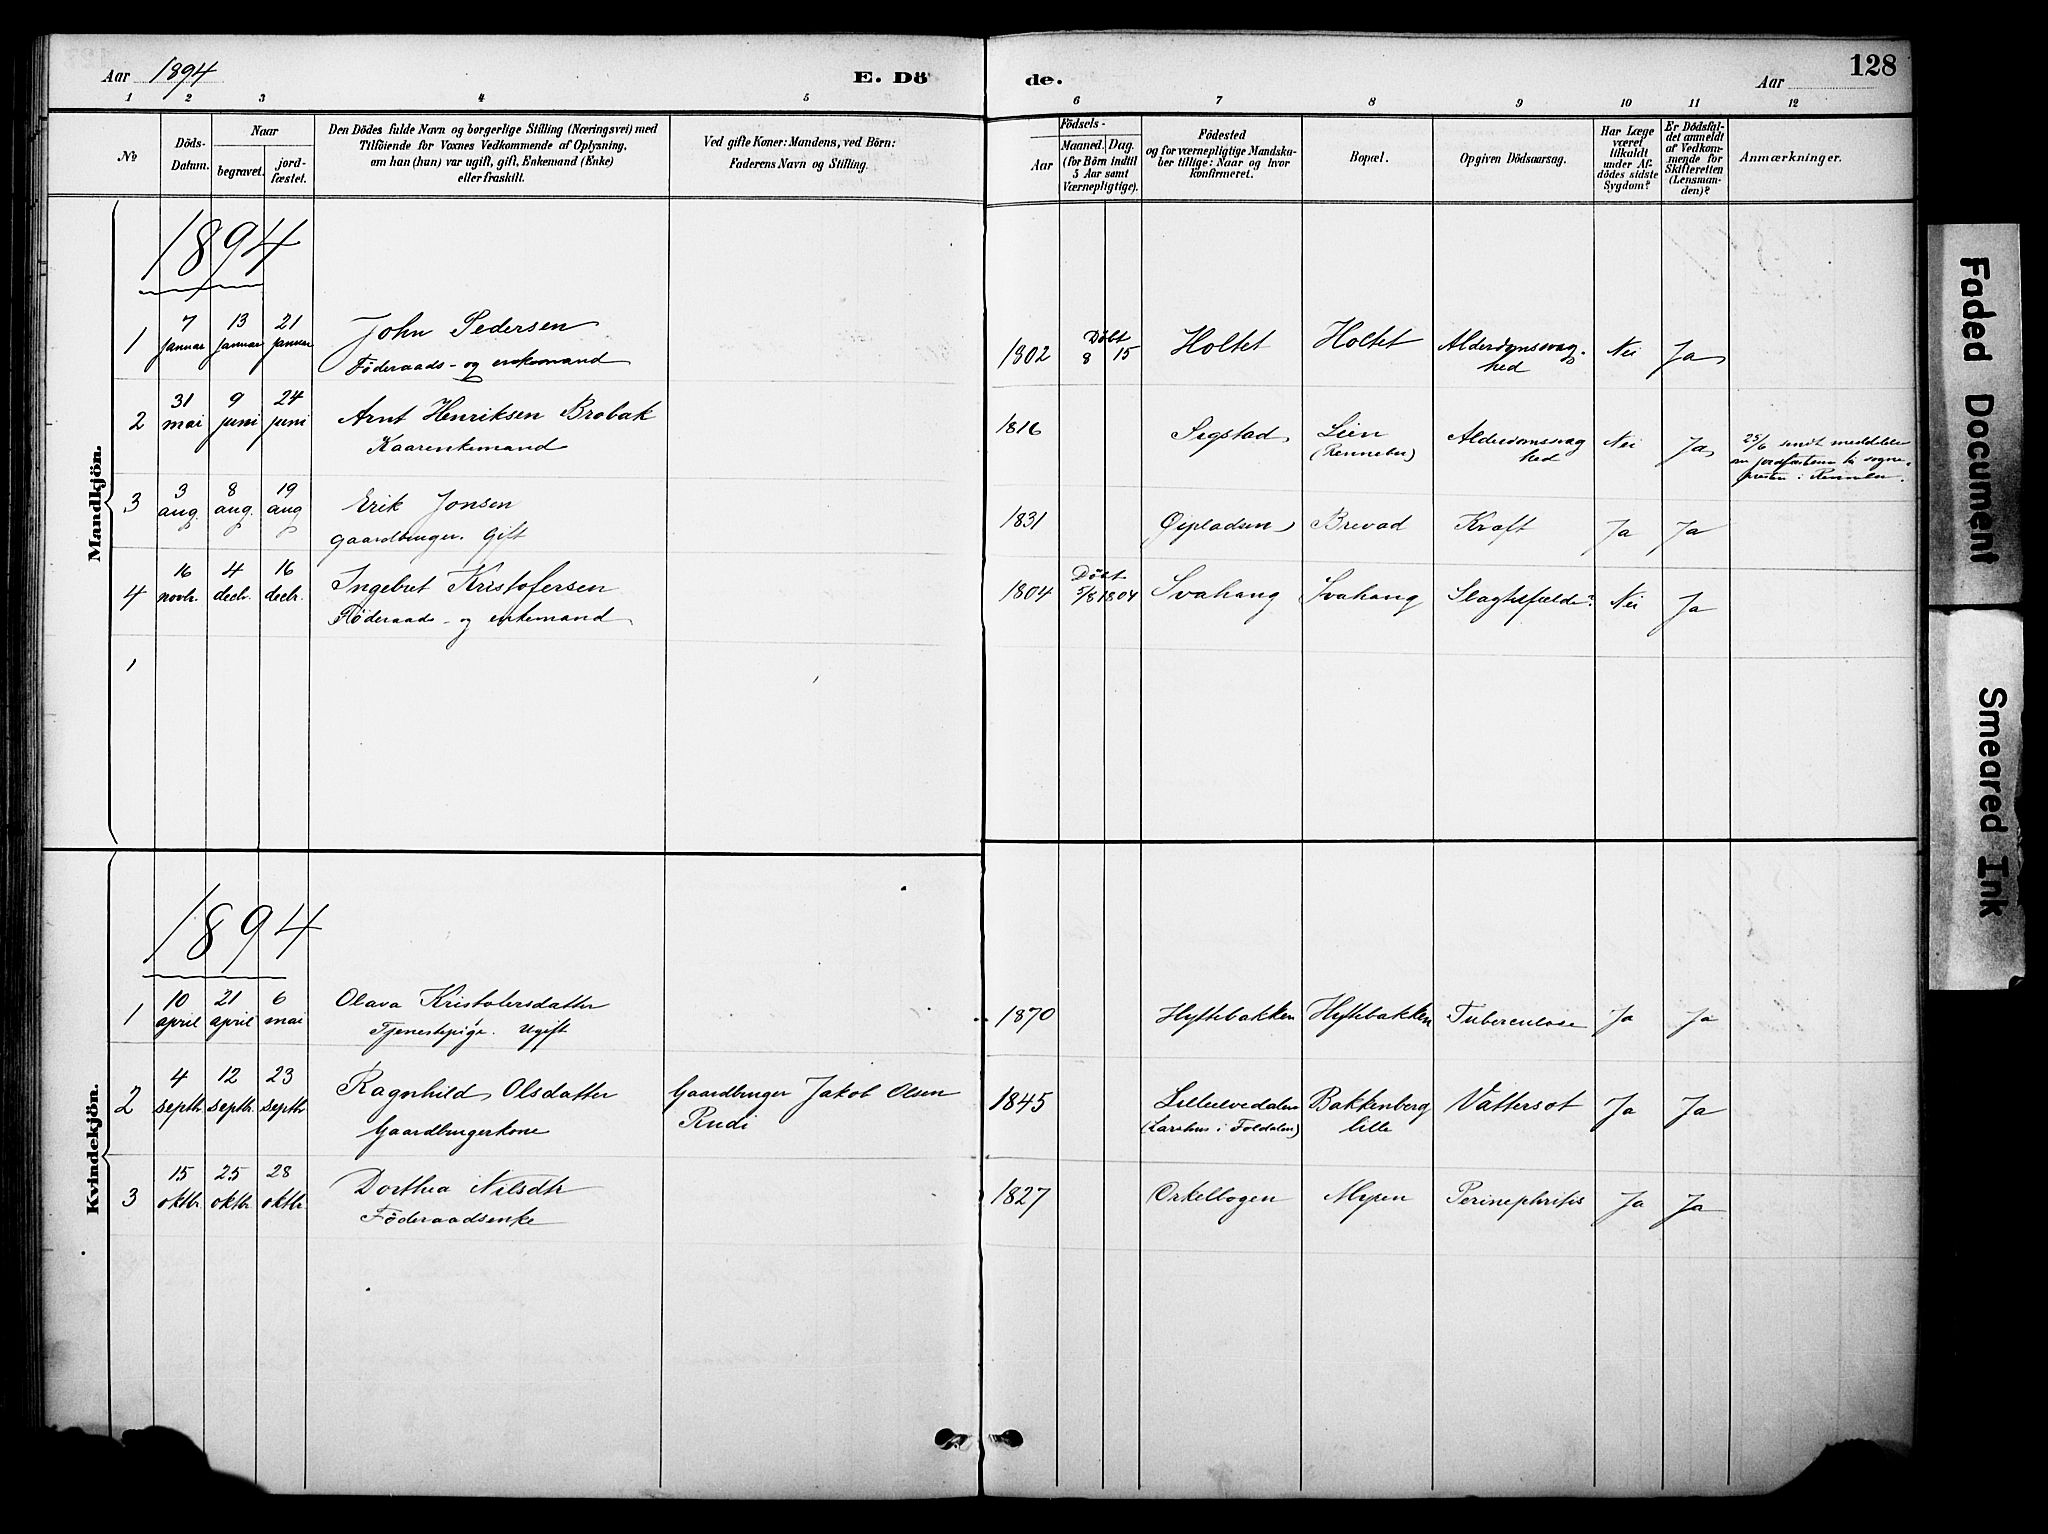 Aar 1894
E. Dö
de.
Aar
128
1 2 3 4 5 6 7 8 9 10 11 12
№
Döds-Datum.
Naar
begravet.
jord-fæstet.
Den Dödes fulde Navn og borgerlige Stilling (Næringsvei) med
Tilföiende for Voxnes Vedkommende af Oplysning,
om han (hun) var ugift, gift, Enkemand (Enke)
eller fraskilt.
Ved gifte Koner: Mandens, ved Börn:
Faderens Navn og Stilling.
Födsels-
Aar
Maaned. Dag.
(for Börn indtil
5 Aar samt
Værnepligtige).
Födested
og for værnepligtige Mandska-
ber tillige: Naar og hvor
konfirmeret.
Bopæl.
Opgiven Dödsaarsag.
Har Læge
været
tilkaldt
under Af-
dödes sidste
Sygdom?
Er Dödsfal-
det anmeldt
af Vedkom-
mende for
Skifteretten
(Lensman-
den)?
Anmærkninger.
Mandkjön.
1894
1 7 januar 13 januar 21 januar John Pedersen 1802 Døbt 8 15 Holtet Holtet Alderdomssvag- Nei Ja
Føderaads- og enkemand hed
2 31 mai 9 juni 24 juni Arnt Henriksen Brobak 1816 Segstad Lien Alderdomssvag Nei Ja 25/6 sendt
Kaarenkemand (Rennebu) hed
3 3 aug. 8 aug. 19 aug Erik Jonsen 1831 Brevad Kræft Ja Ja
gaardbruger. Gift
4 16 novbr. 4 decbr. 16 decbr. Ingebret Kristofersen 1804 Døbt 5/8 1804 Svahaug Svahaug Slagtilfælde? Nei Ja
Føderaads- og enkemand
1
Kvindekjön.
1894
1 10 april 21 april 6 mai Olava Kristofersdatter 1870 Hyttebakken Hyttebakken Tuberculose Ja Ja
Tjenestepige. Ugift
2 4 septbr. 12 septbr. 23 septbr. Ragnhild Olsdatter Gaardbruger Jakob Olsen 1845 Lilleelvedalen Bakkenberg Vattersot Ja Ja
Gaardbrugerkone Rudi i Foldalen) lille
3 15 oktbr. 25 oktbr. 28 oktbr. Dorthea Nilsdtr 1827 Orkelbogen Myren Perinephritis Ja Ja
Föderaadsenke
Faded Document
Smeared Ink